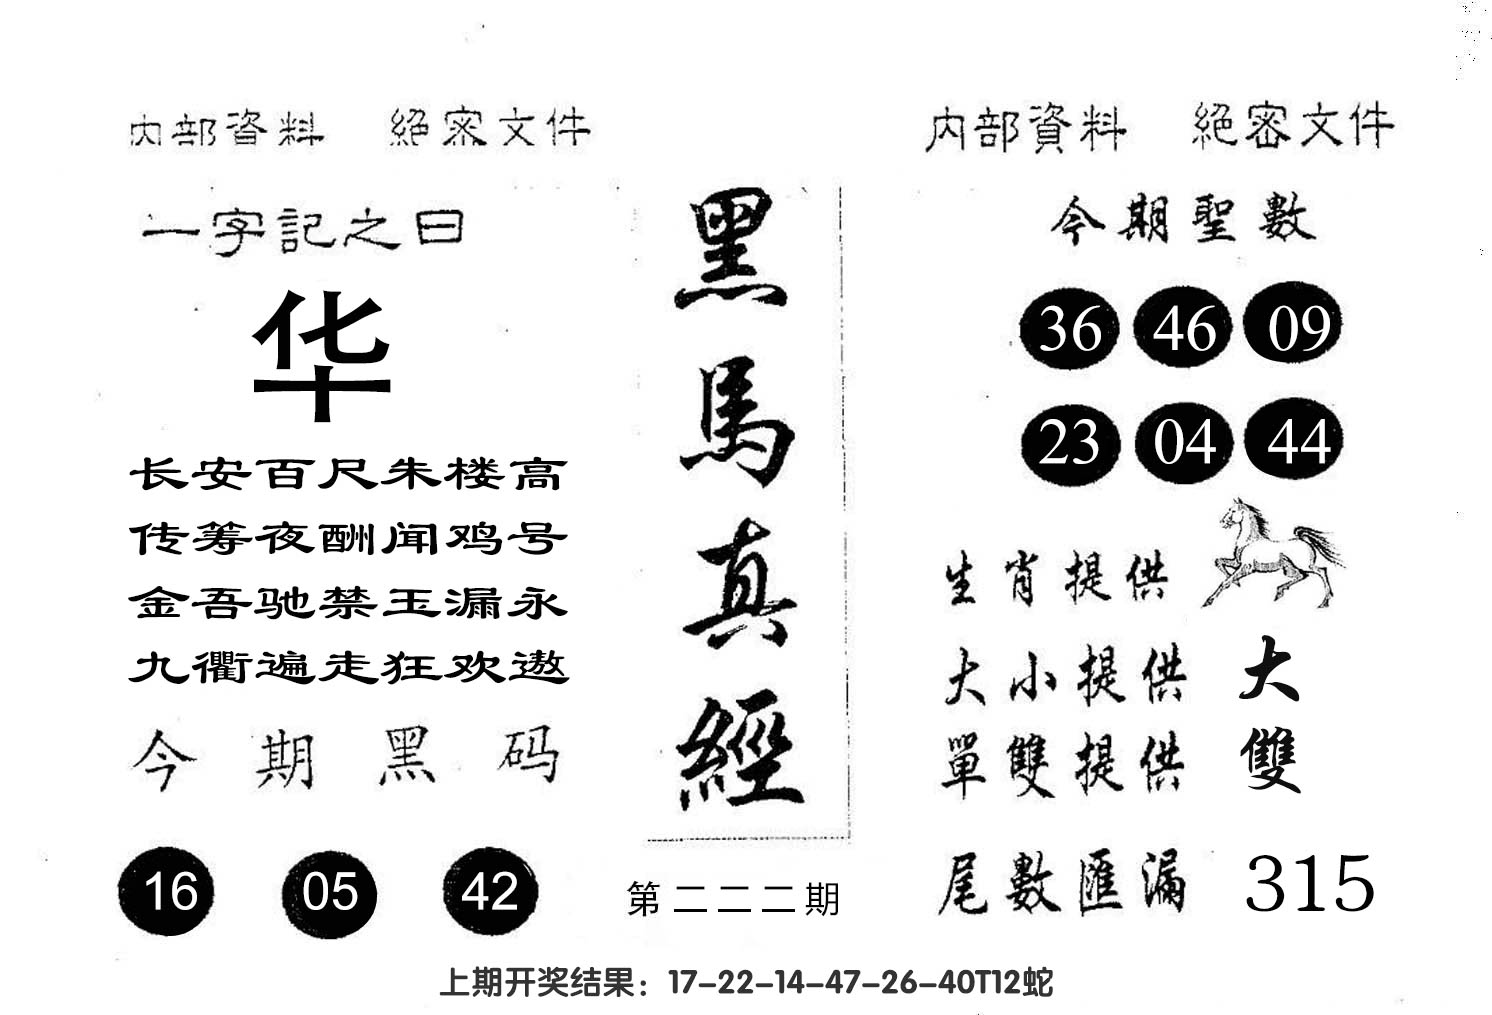 内部資料 絕密文件
一字記之曰
华
长安百尺朱楼高
传筹夜酬闻鸡号
金吾驰禁玉漏永
九衢遍走狂欢遨
今期黑码
16 05 42
黑馬真經
第二二二期
内部資料 絕密文件
今期聖數
36 46 09
23 04 44
生肖提供
大小提供 大
單雙提供 雙
尾數匯漏 315
上期开奖结果：17-22-14-47-26-40T12蛇